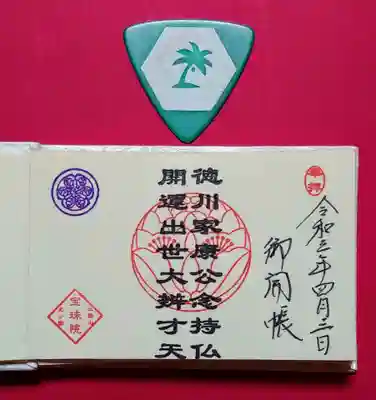 奉拝
令和三年四月三日
御開帳
徳川家康公念持仏
開運出世大辨才天
宝珠院